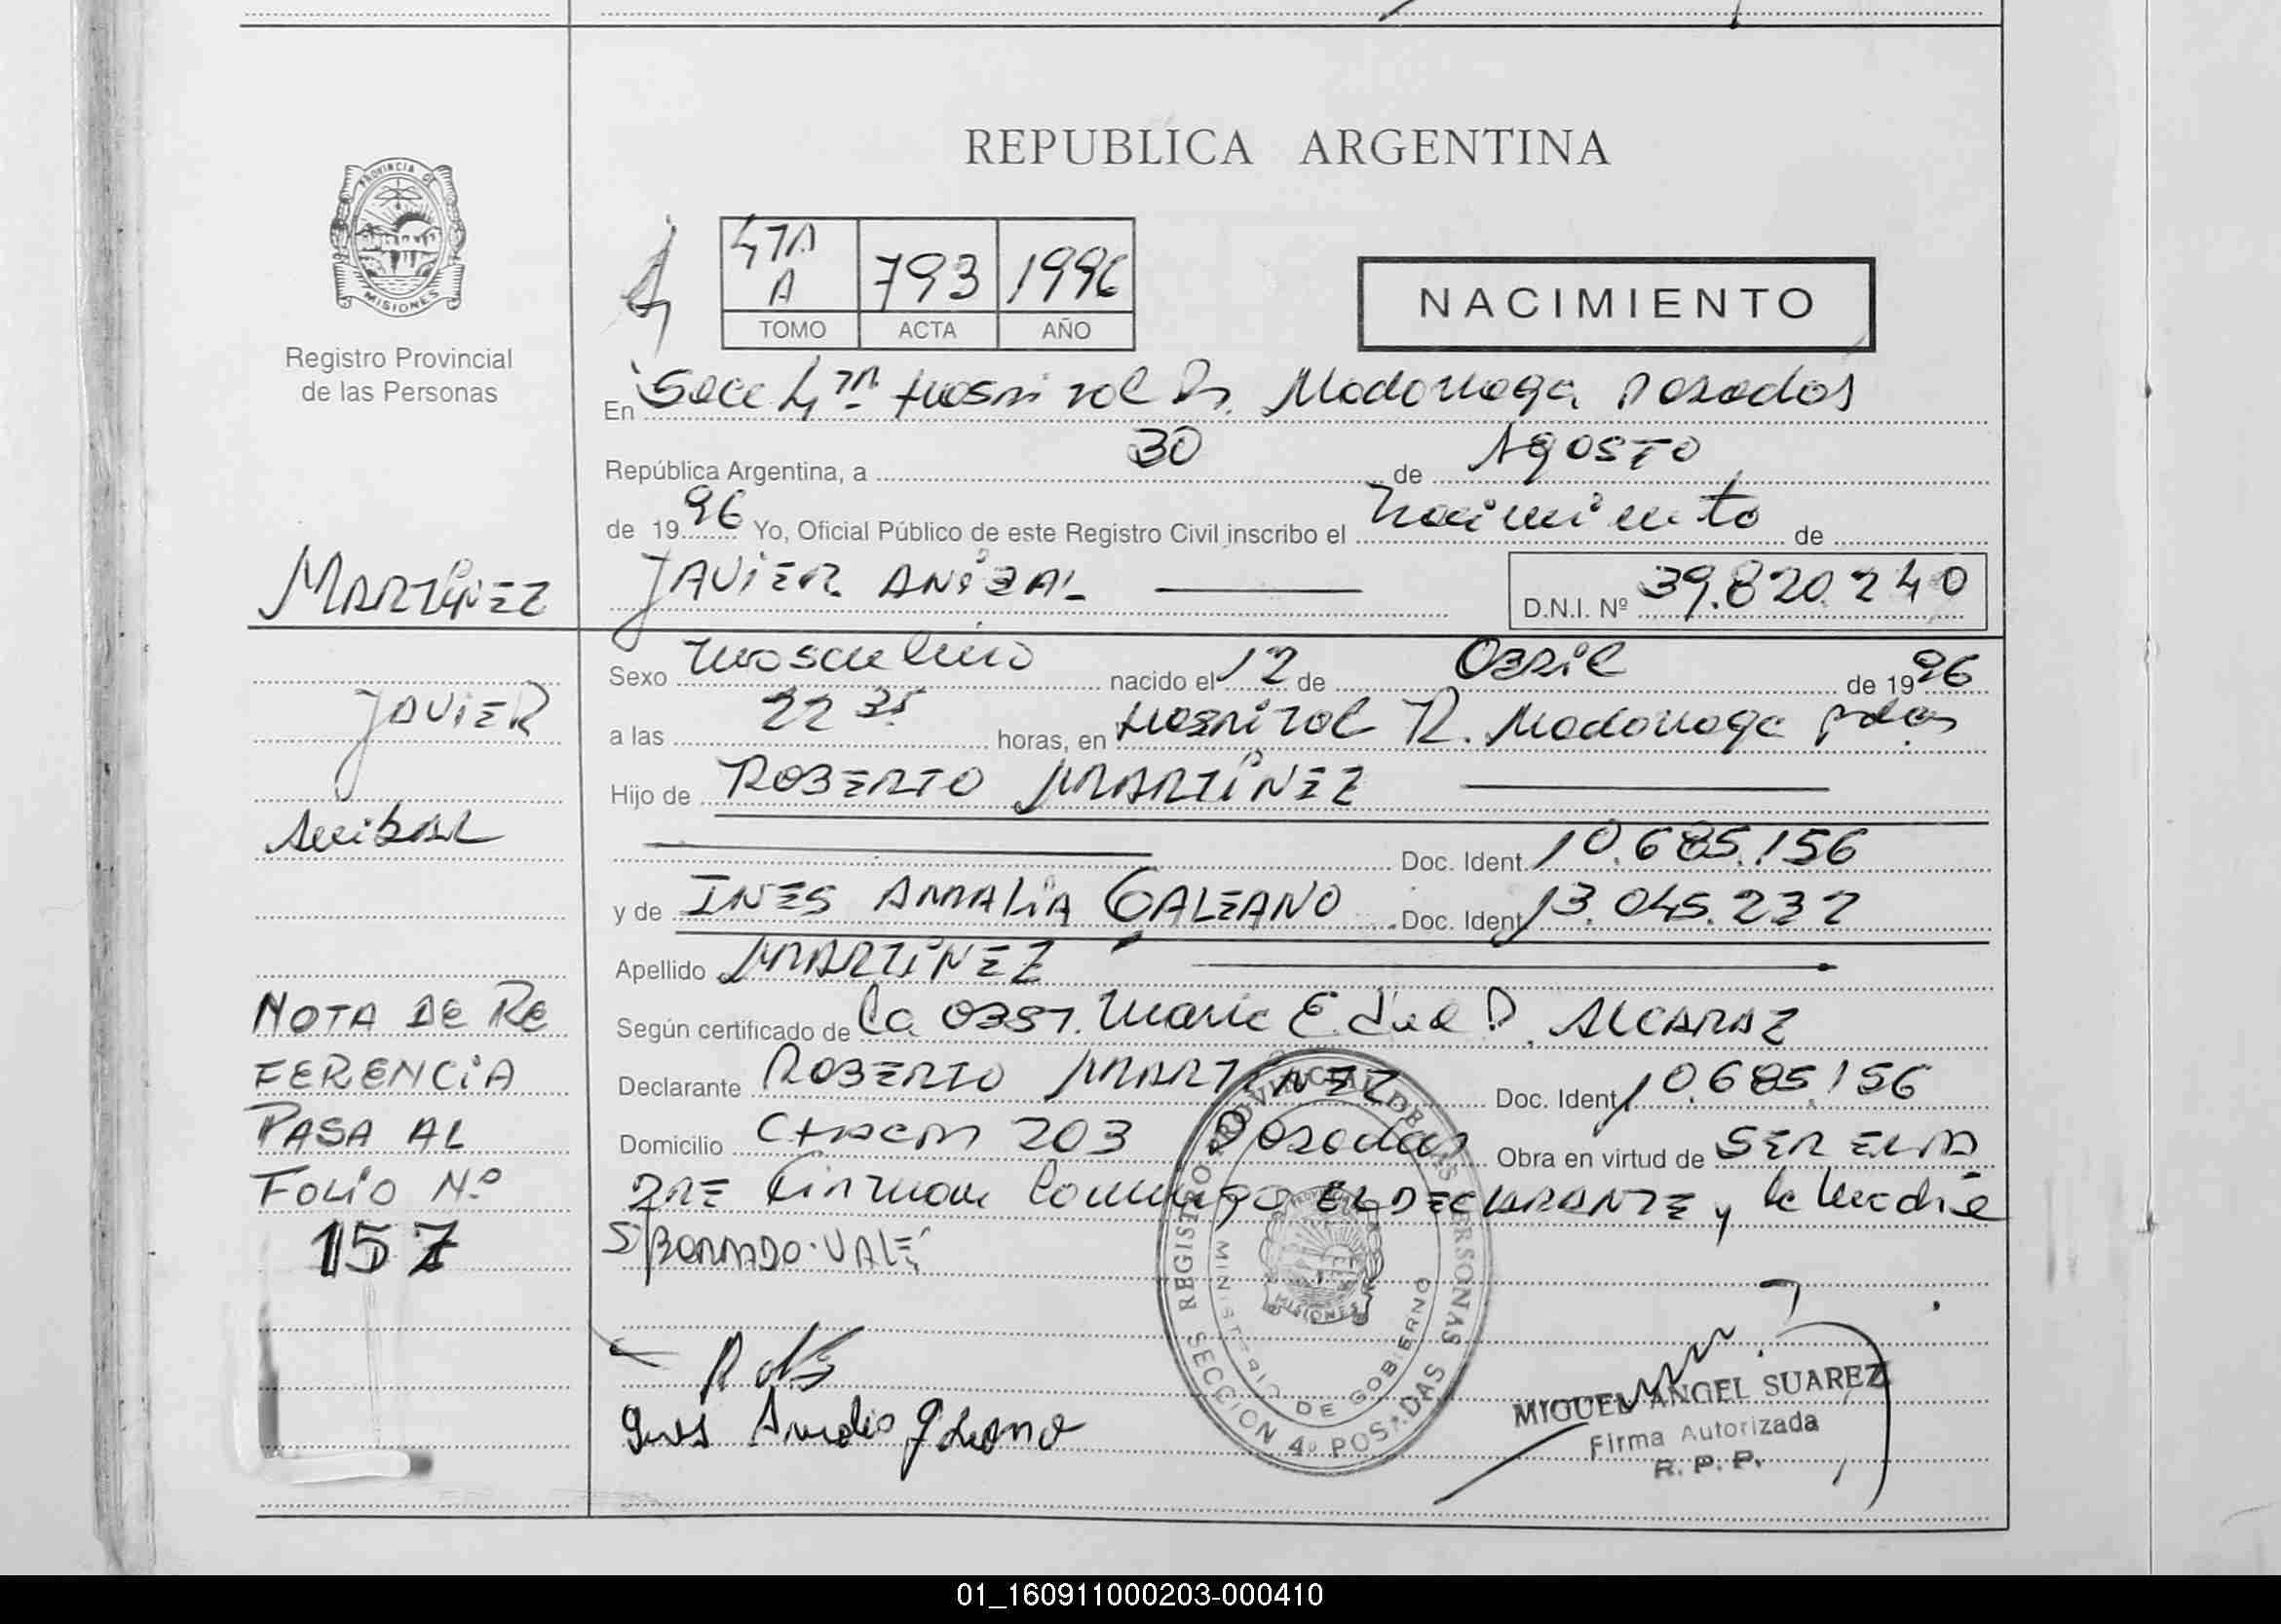 REPUBLICA ARGENTINA
PROVINCIA DE
MISIONES
Registro Provincial
de las Personas
4TA
A
793
1996
TOMO
ACTA
AÑO
NACIMIENTO
En Secc 4TA Hospital Dr. Madariaga Posadas
República Argentina, a 30 de Agosto
de 1996 Yo, Oficial Público de este Registro Civil inscribo el nacimiento de
MARTINEZ
JAVIER ANIBAL
D.N.I. Nº 39.820.240
Sexo masculino nacido el 12 de Abril de 1996
JAVIER
a las 22 35 horas, en Hospital R. Madariaga Pdas
Hijo de ROBERTO MARTINEZ
Anibal
Doc. Ident. 10.685.156
y de INES AMALIA GALEANO Doc. Ident. 13.045.232
Apellido MARTINEZ
NOTA DE RE
Según certificado de la OBST. Maria E. D. ALCARAZ
FERENCIA
Declarante ROBERTO MARTINEZ Doc. Ident. 10.685.156
PASA AL
Domicilio CHACO 203 Posadas Obra en virtud de SER EL PA
FOLIO Nº
DRE Firman conmigo EL DECLARANTE y la madre
157
S/BORRADO·VALE
REGISTRO PROVINCIAL DE LAS PERSONAS
MINISTERIO DE GOBIERNO
MISIONES
SECCION 4º POSADAS
Ines Amalia Galeano
MIGUEL ANGEL SUAREZ
Firma Autorizada
R. P. P.
01_160911000203-000410